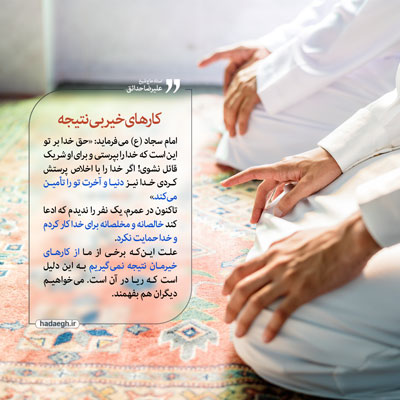 استاد حاج شیخ
علیرضا حدائق
کارهای خیر بی‌نتیجه
امام سجاد (ع) می‌فرماید: «حق خدا بر تو
این است که خدا را بپرستی و برای او شریک
قائل نشوی! اگر خدا را با اخلاص پرستش
کردی خدا نیز دنیا و آخرت تو را تأمین
می‌کند»
تاکنون در عمرم، یک نفر را ندیدم که ادعا
کند خالصانه و مخلصانه برای خدا کار کردم
و خدا حمایت نکرد.
علت این‌که برخی از ما از کارهای
خیرمان نتیجه نمی‌گیریم به این دلیل
است که ریا در آن است. می‌خواهیم
دیگران هم بفهمند.
hadaegh.ir